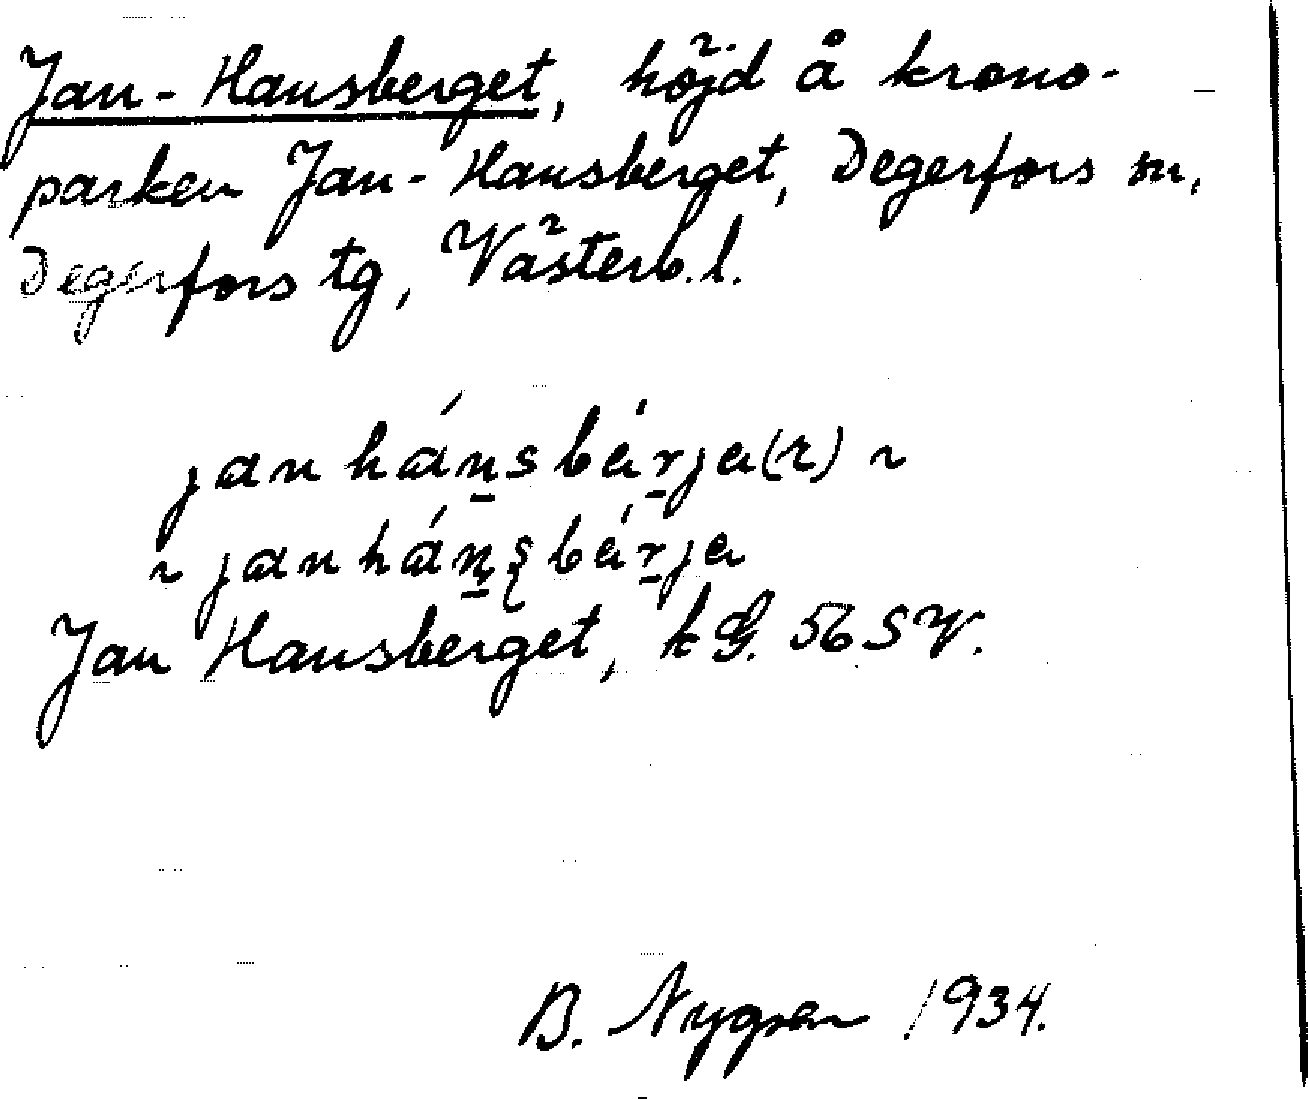 Jan-Hansberget, höjd å krono-
parken Jan-Hansberget, Degerfors sn,
Degerfors tg, Västerb. l.
jan hánsbárja(r) ~
~ janhánsbárja
Jan Hansberget, kG. 56 SV.
B. Nygren 1934.